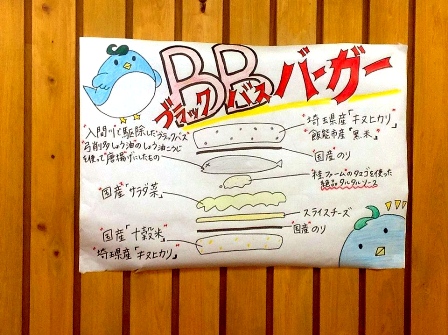 BB
ブラックバス
バーガー
"入間川で駆除したブラックバス
弓削多しょう油のしょう油こうじ
を使って"唐揚げにしたもの
埼玉県産「キヌヒカリ」
飯能市産「黒米」
"国産"のり
桂ファームのタマゴを使った
絶品タルタルソース
"国産"サラダ菜"
スライスチーズ
"国産"のり
"国産"「十穀米"
"埼玉県産「キヌヒカリ」